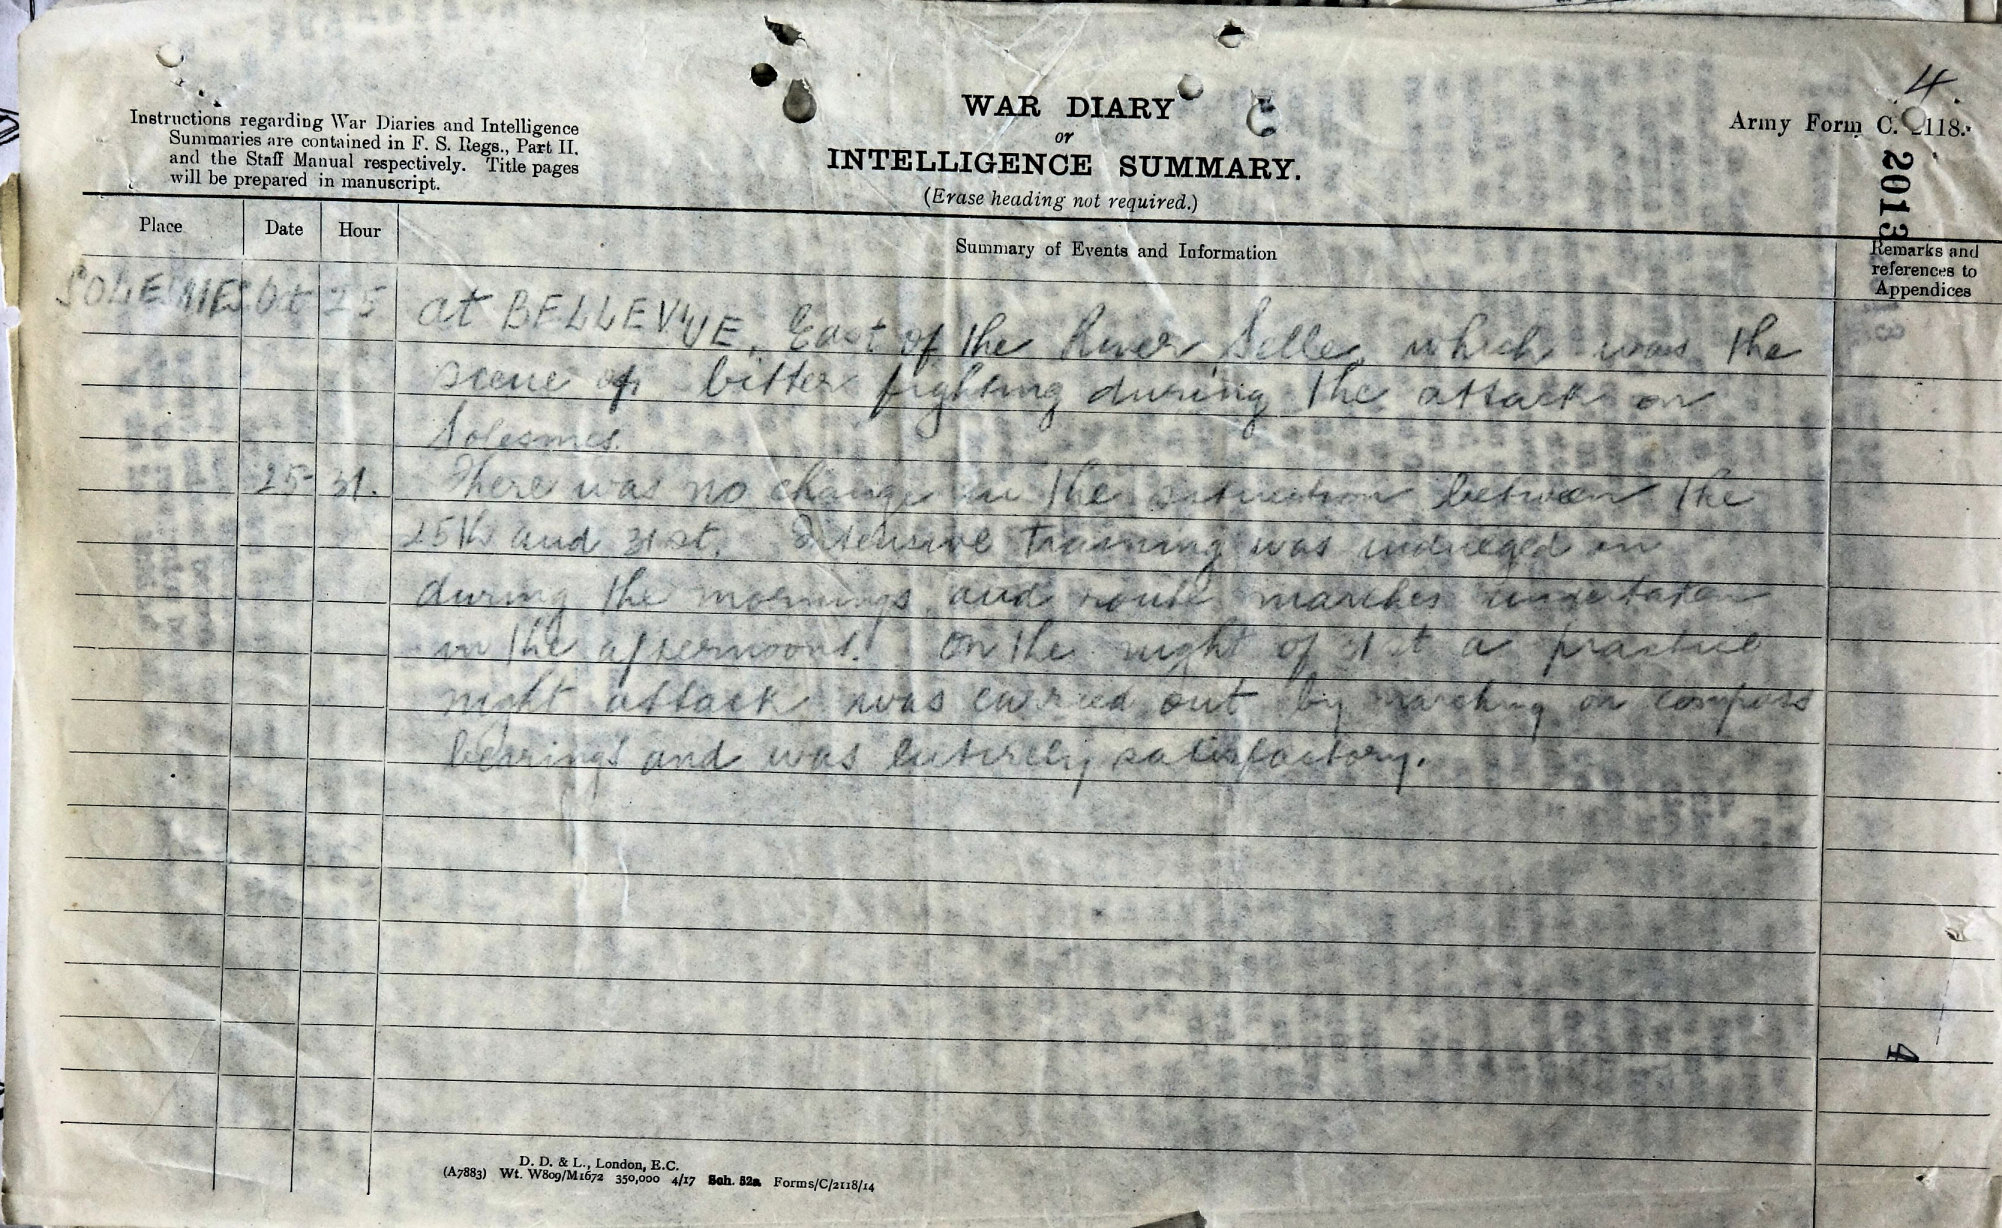 4.
Instructions regarding War Diaries and Intelligence
Summaries are contained in F. S. Regs., Part II.
and the Staff Manual respectively. Title pages
will be prepared in manuscript.
WAR DIARY
or
INTELLIGENCE SUMMARY.
(Erase heading not required.)
Army Form C. 2118.
2013
Place
Date
Hour
Summary of Events and Information
Remarks and
references to
Appendices
SOLESMES Oct 25 at BELLEVUE, East of the River Selle, which was the
scene of bitter fighting during the attack on
Solesmes.
25- 31. There was no change in the situation between the
25th and 31st. Intensive training was indulged in
during the mornings and route marches undertaken
in the afternoons. On the night of 31st a practice
night attack was carried out by marching on compass
bearings and was entirely satisfactory.
4
D. D. & L., London, E.C.
(A7883) Wt. W809/M1672 350,000 4/17 Sch. 52a Forms/C/2118/14